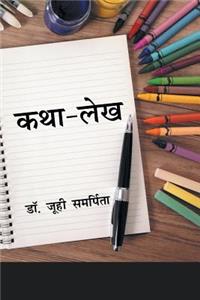 कथा-लेख
डॉ. जूही समर्पिता